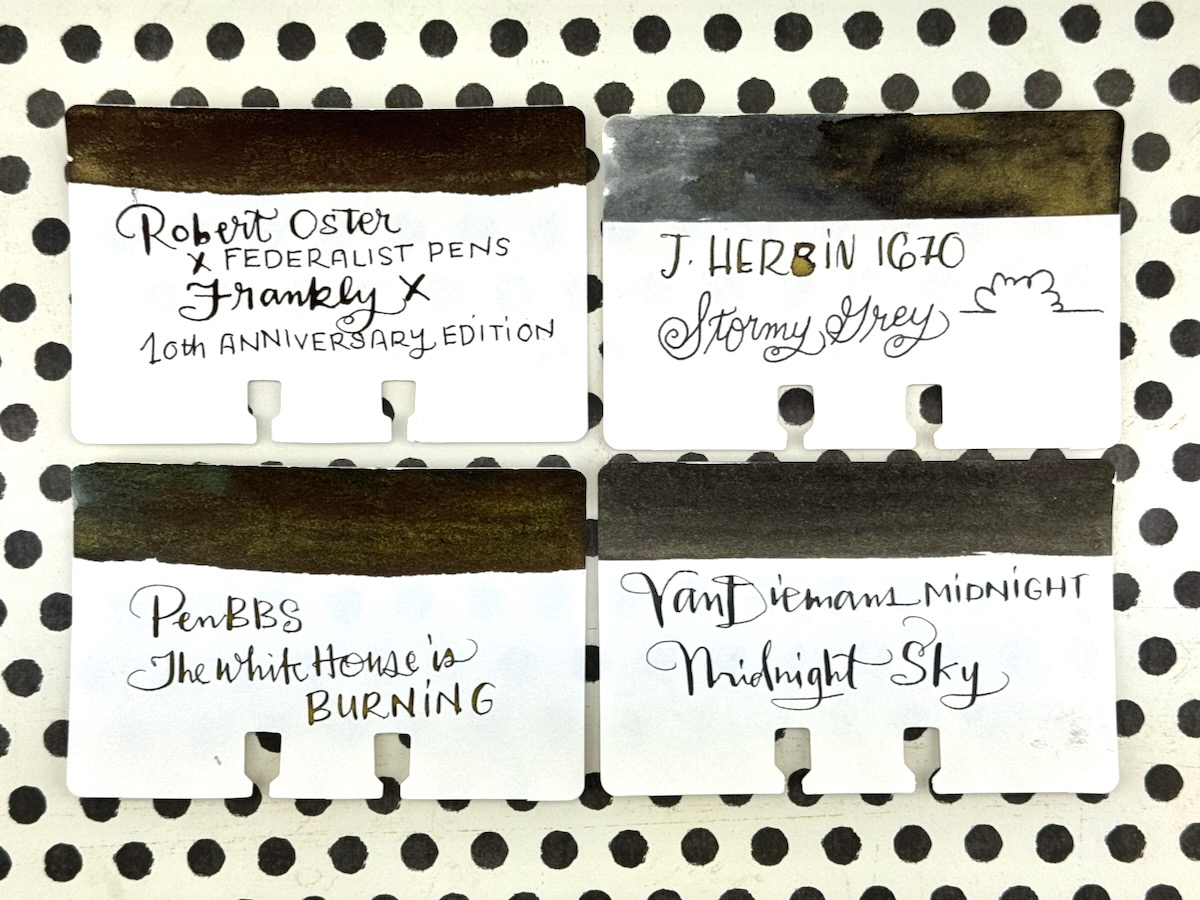 Robert Oster
x FEDERALIST PENS
Frankly X
10th ANNIVERSARY EDITION
J. HERBiN 1670
Stormy Grey
PenBBS
The White House is
BURNiNG
VanDiemans MiDNiGHT
Midnight Sky